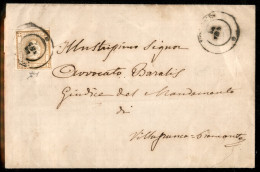 Illustrissimo Signor
Avvocato Baralis
Giudice del Mandamento
di
Villafranca-Piemonte